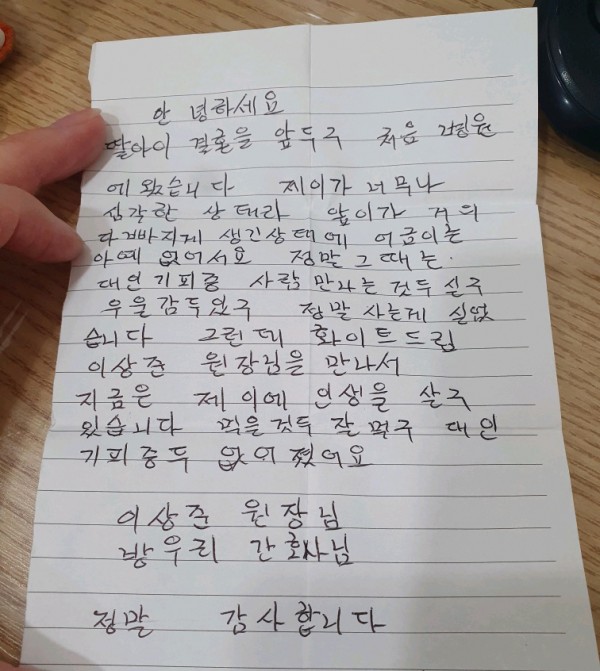 안녕하세요
딸아이 결혼을 앞두구 처음 병원
에 왔습니다 제이가 너무나
심각한 상태라 앞이가 거의
다 빠지게 생긴상태에 어금이는
아예 없어서요 정말 그때는.
대인기피증 사람 만나는것두 싫구
우울감두있구 정말 사는게 싫었
습니다 그런데 화이트드림
이상준 원장님을 만나서
지금은 제이에 인생을 살구
있습니다 먹을것두 잘먹구 대인
기피증두 없어졌어요
이상준 원장님
방우리 간호사님
정말 감사합니다